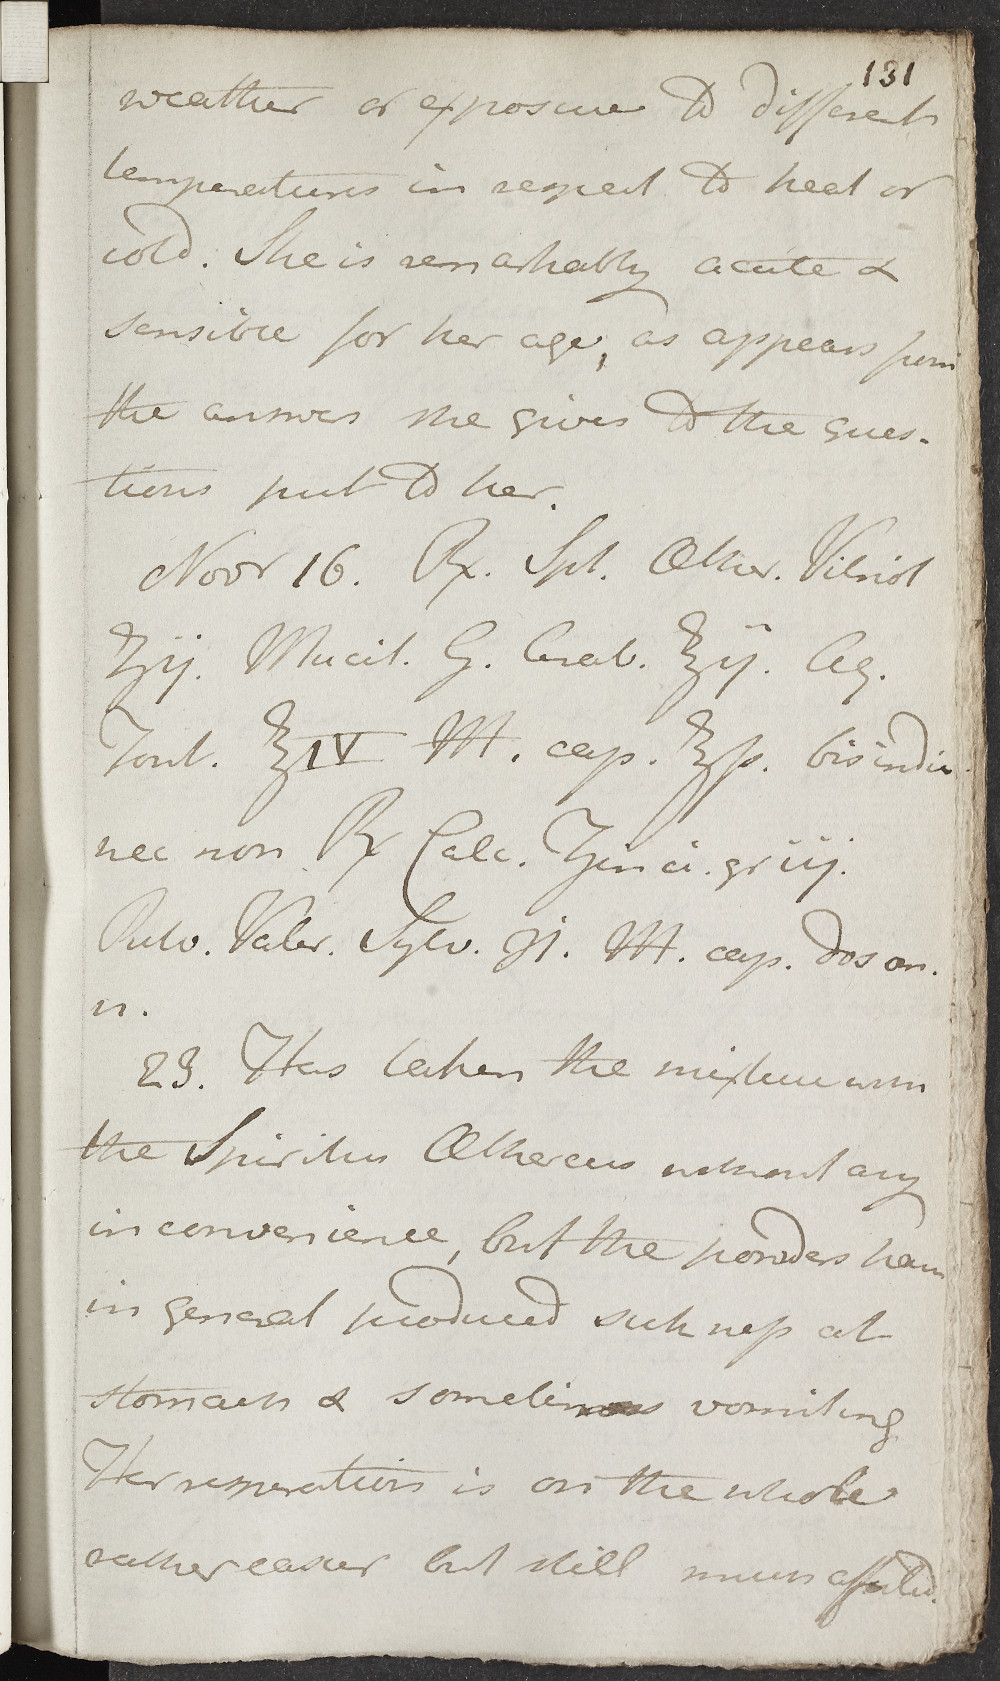 131
weather or exposure to different
temperatures in respect to heat or
cold. She is remarkably acute &
sensible for her age, as appears from
the answers she gives to the ques-
tions put to her.
Novr 16. ℞. Spt. Æther. Vitriol
ʒij. Mucil. G. Arab. ℥ij. Aq.
Font. ℥IV M. cap. ℥ſs. bis indie
nec non ℞ Calc. Zinci. gr iij.
Pulv. Valer. Sylv. ℈i. M. cap. dos om.
n.
23. Has taken the mixture with
the Spiritus Æthereus without any
inconvenience, but the powders have
in general produced sickness at
stomach & sometimes vomiting
Her respiration is on the whole
rather easier but still much affected.